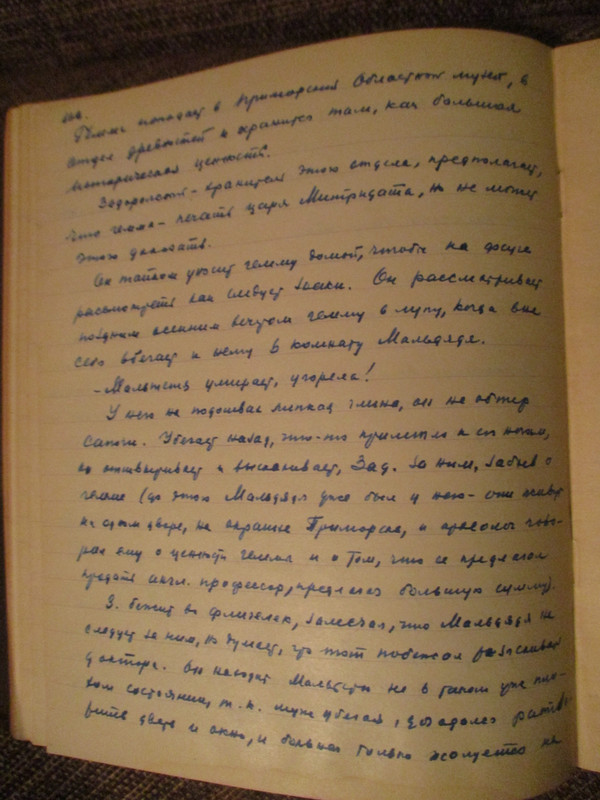 Гемма попадает в Приморский Областной музей, в
отдел древностей и хранится там, как большая
историческая ценность.
Задорожный - хранитель этого отдела, предполагает,
что гемма - печать царя Митридата, но не может
этого доказать.
Он тайком уносит гемму домой, чтобы на досуге
рассмотреть как следует знаки. Он рассматривает
поздним осенним вечером гемму в лупу, когда вне
себя вбегает к нему в комнату Мальдядя.
- Мальтетя умирает, угорела!
У него на подошвах липкая глина, он не обтер
сапоги. Убегает назад, что-то прилипло к его ногам,
он отшвыривает и выскакивает, Зад. за ним, забыв о
гемме (до этого Мальдядя уже был у него - они живут
на одном дворе, на окраине Приморска, и археолог гово-
рил ему о ценности геммы и о том, что ее предлагал
продать англ. профессор, предлагал большую сумму).
З. бежит во флигелек, замечая, что Мальдядя не
следует за ним, но думает, что тот побежал разыскивать
доктора. Он находит Мальтетю не в таком уже пло-
хом состоянии, т.к. муж убегая, догадался раство-
рить дверь и окно, и больная только жалуется на